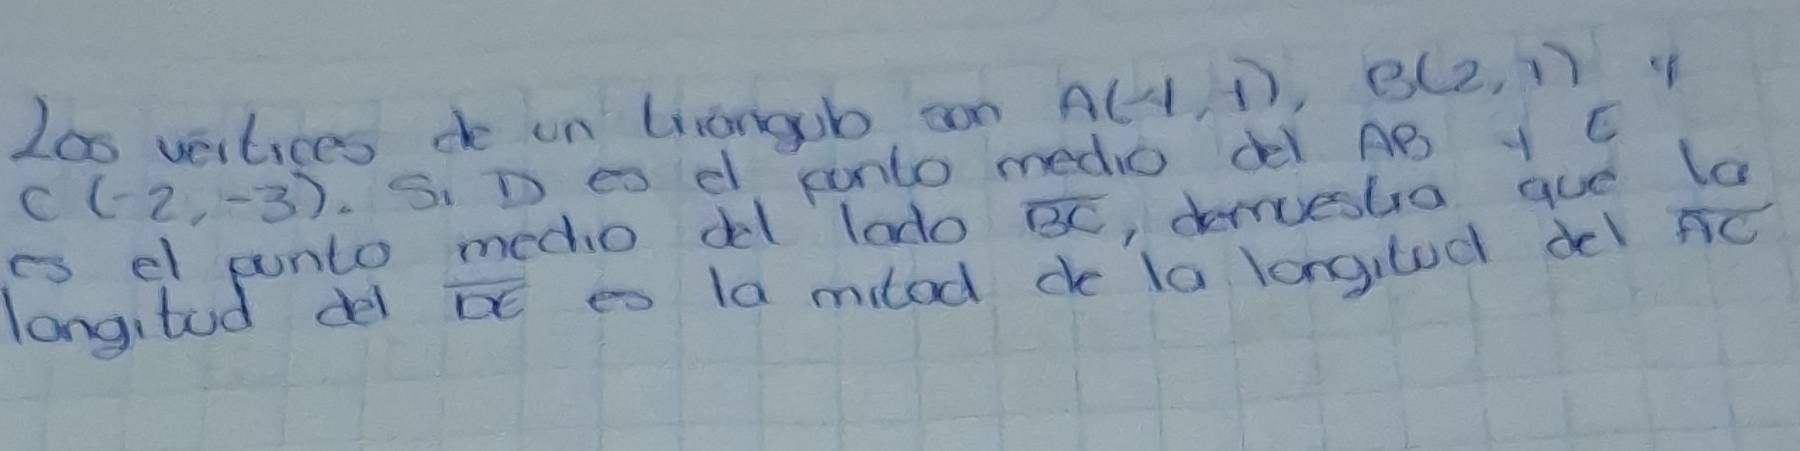 Los vértices de un triangulo son A(-1, 1), B(2, 1) y
C (-2, -3). Si D es el punto medio del AB y E
es el punto medio del lado BC, demuestra que la
longitud del DE es la mitad de la longitud del AC